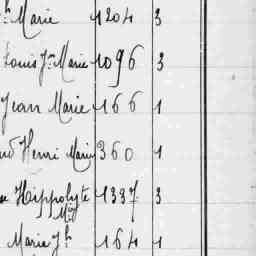 h Marie 1204 3
Louis Jh Marie 1096 3
Jean Marie 166 1
Henri Marie 360 1
Hippolyte 1337 3
Marie Jh 164 1